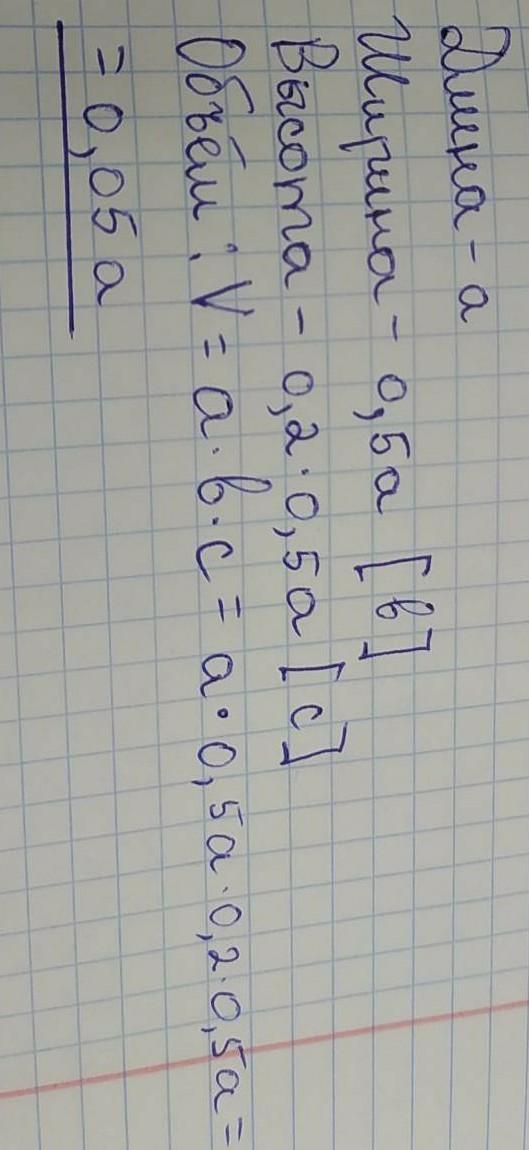 Длина - a
Ширина - 0,5a [в]
Высота - 0,2·0,5a [c]
Объём: V = a·в·c = a·0,5a·0,2·0,5a =
= 0,05a